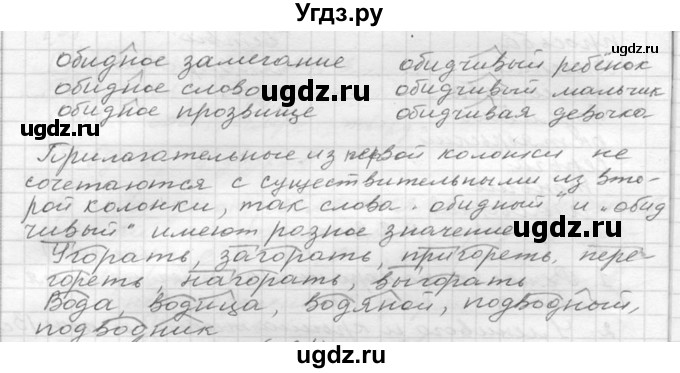 Угдз.ру
gdz.ru
обидное замечание обидчивый ребёнок
обидное слово обидчивый мальчик
gdz.ru
обидное прозвище обидчивая девочка
uгдз.ru
Прилагательные из первой колонки не
сочетаются с существительными из вто-
рой колонки, так слова „обидный" и „обид
чивый" имеют разное значение
Угорать, загорать, пригореть, пере-
гореть, нагорать, выгорать
Вода, водица, водяной, подводный,
подводник
uгдз.ru